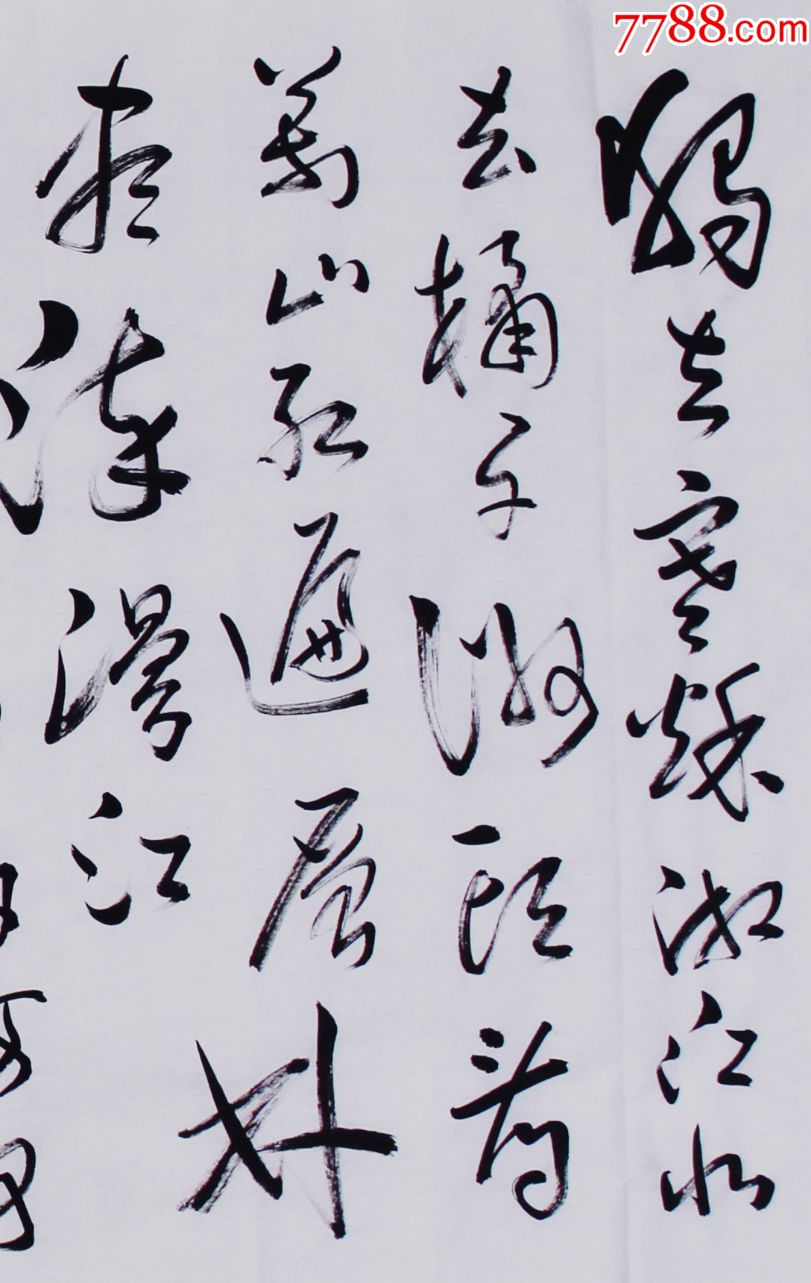 7788.com
獨立寒秋湘江北
去橘子洲頭看
萬山紅遍層林
盡染漫江